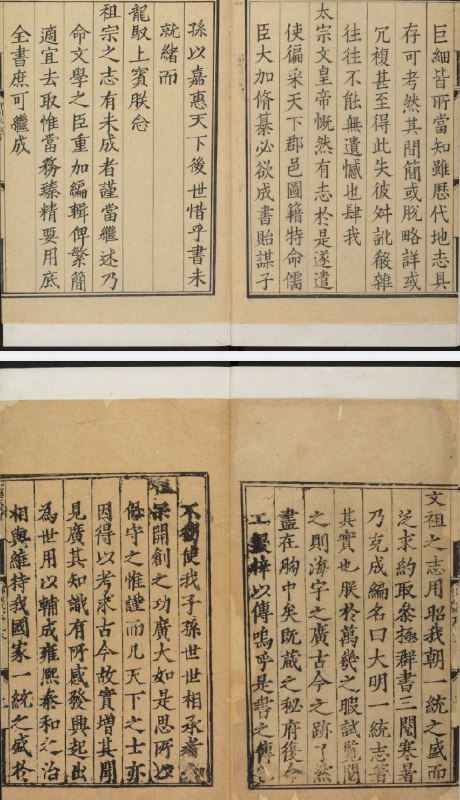 巨細皆所當知雖歷代地志具
存可考然其間簡或脫略詳或
冗複甚至得此失彼舛訛殽雜
往往不能無遺憾也肆我
太宗文皇帝慨然有志於是遂遣
使徧采天下郡邑圖籍特命儒
臣大加脩纂必欲成書貽謀子
孫以嘉惠天下後世惜乎書未
就緒而
龍馭上賓朕念
祖宗之志有未成者謹當繼述乃
命文學之臣重加編輯俾繁簡
適宜去取惟當務臻精要用底
全書庶可繼成
文祖之志用昭我朝一統之盛而
泛求約取參極群書三閱寒暑
乃克成編名曰大明一統志著
其實也朕於萬幾之暇試覽閱
之則海宇之廣古今之跡了然
盡在胸中矣既藏之秘府復命
工鋟梓以傳嗚呼是書之傳
不獨使我子孫世世相承者
開創之功廣大如是思所以
保守之惟謹而凡天下之士亦
因得以考求古今故實增其聞
見廣其知識有所感發興起出
為世用以輔成雍熙泰和之治
相與維持我國家一統之盛於